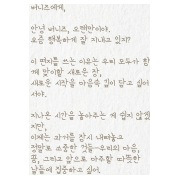 버니즈에게,
안녕 버니즈, 오랜만이야.
요즘 행복하게 잘 지내고 있지?
이 편지를 쓰는 이유는 우리 모두가 함
께 맞이할 새로운 장,
새로운 시작을 마음속 깊이 담고 싶어
서야.
지나온 시간을 놓아주는 게 쉽지 않겠
지만,
이제는 과거를 잠시 내려놓고
정말로 소중한 것들—우리의 마음,
꿈, 그리고 앞으로 마주할 따뜻한
날들에 집중하고 싶어.